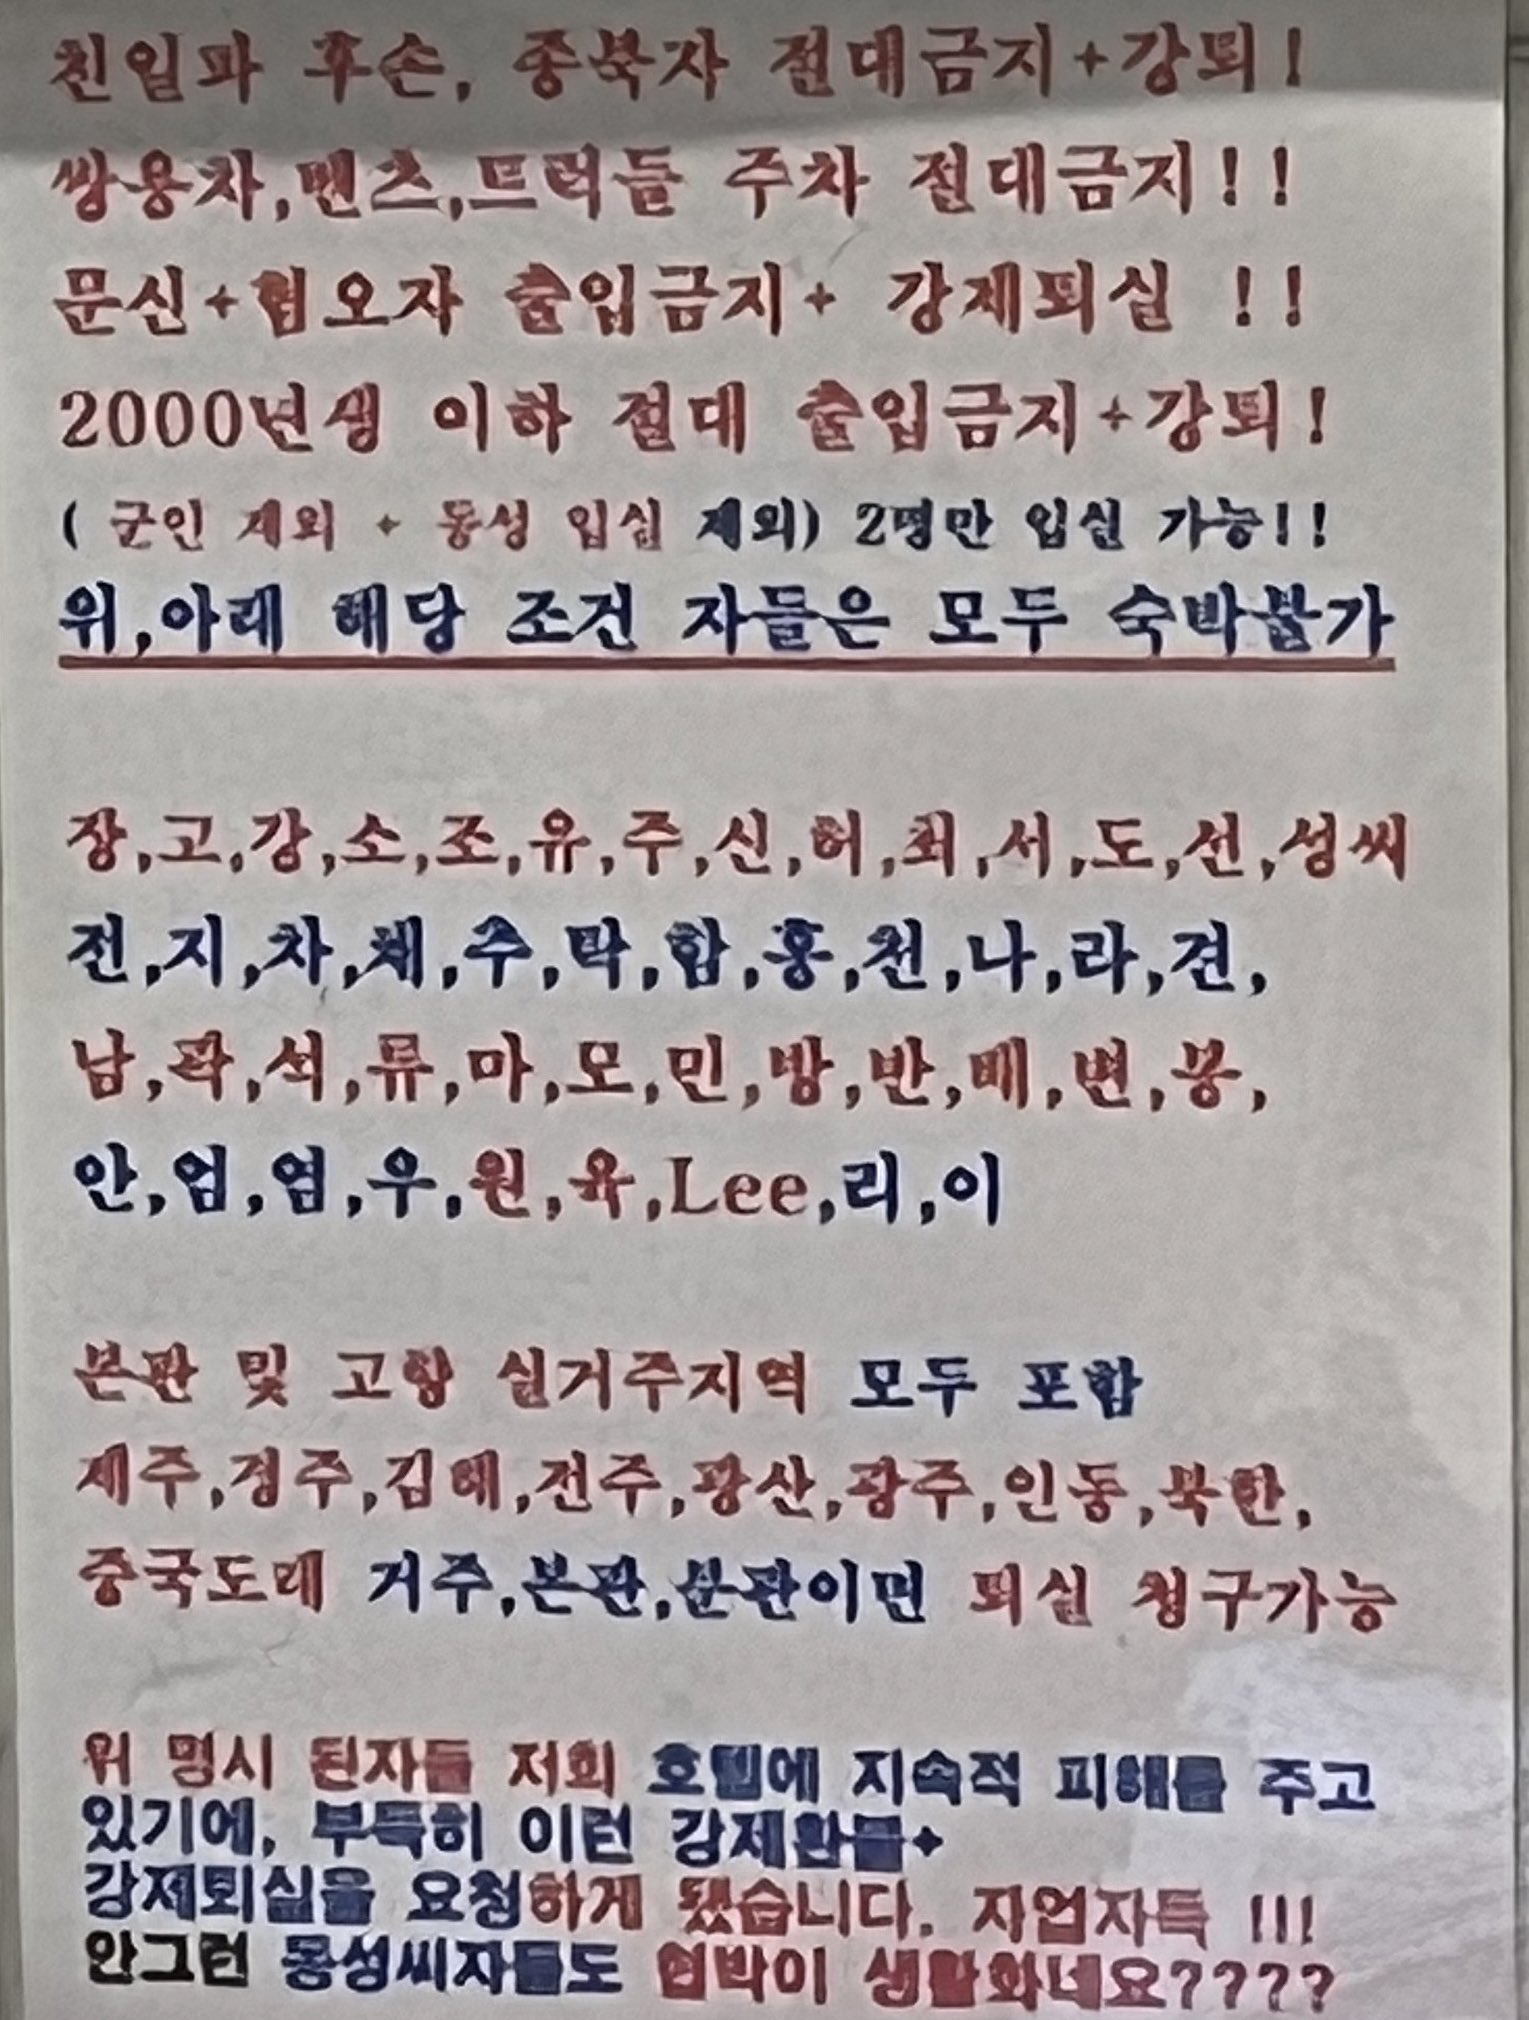 친일파 후손, 종북자 절대금지+강퇴!
쌍용차,벤츠,트럭들 주차 절대금지!!
문신+혐오자 출입금지+ 강제퇴실 !!
2000년생 이하 절대 출입금지+강퇴!
( 군인 제외 + 동성 입실 제외) 2명만 입실 가능!!
위,아래 해당 조건 자들은 모두 숙박불가
장,고,강,소,조,유,주,신,허,최,서,도,선,성씨
전,지,차,채,추,탁,함,홍,천,나,라,견,
남,곽,석,류,마,모,민,방,반,배,변,봉,
안,엄,염,우,원,육,Lee,리,이
본관 및 고향 실거주지역 모두 포함
제주,경주,김해,전주,광산,광주,인동,북한,
중국도래 거주,본관,분관이면 퇴실 청구가능
위 명시 된자들 저희 호텔에 지속적 피해를 주고
있기에, 부득히 이런 강제환불+
강제퇴실을 요청하게 됐습니다. 자업자득 !!!
안그런 몽성씨자들도 협박이 생활화네요????